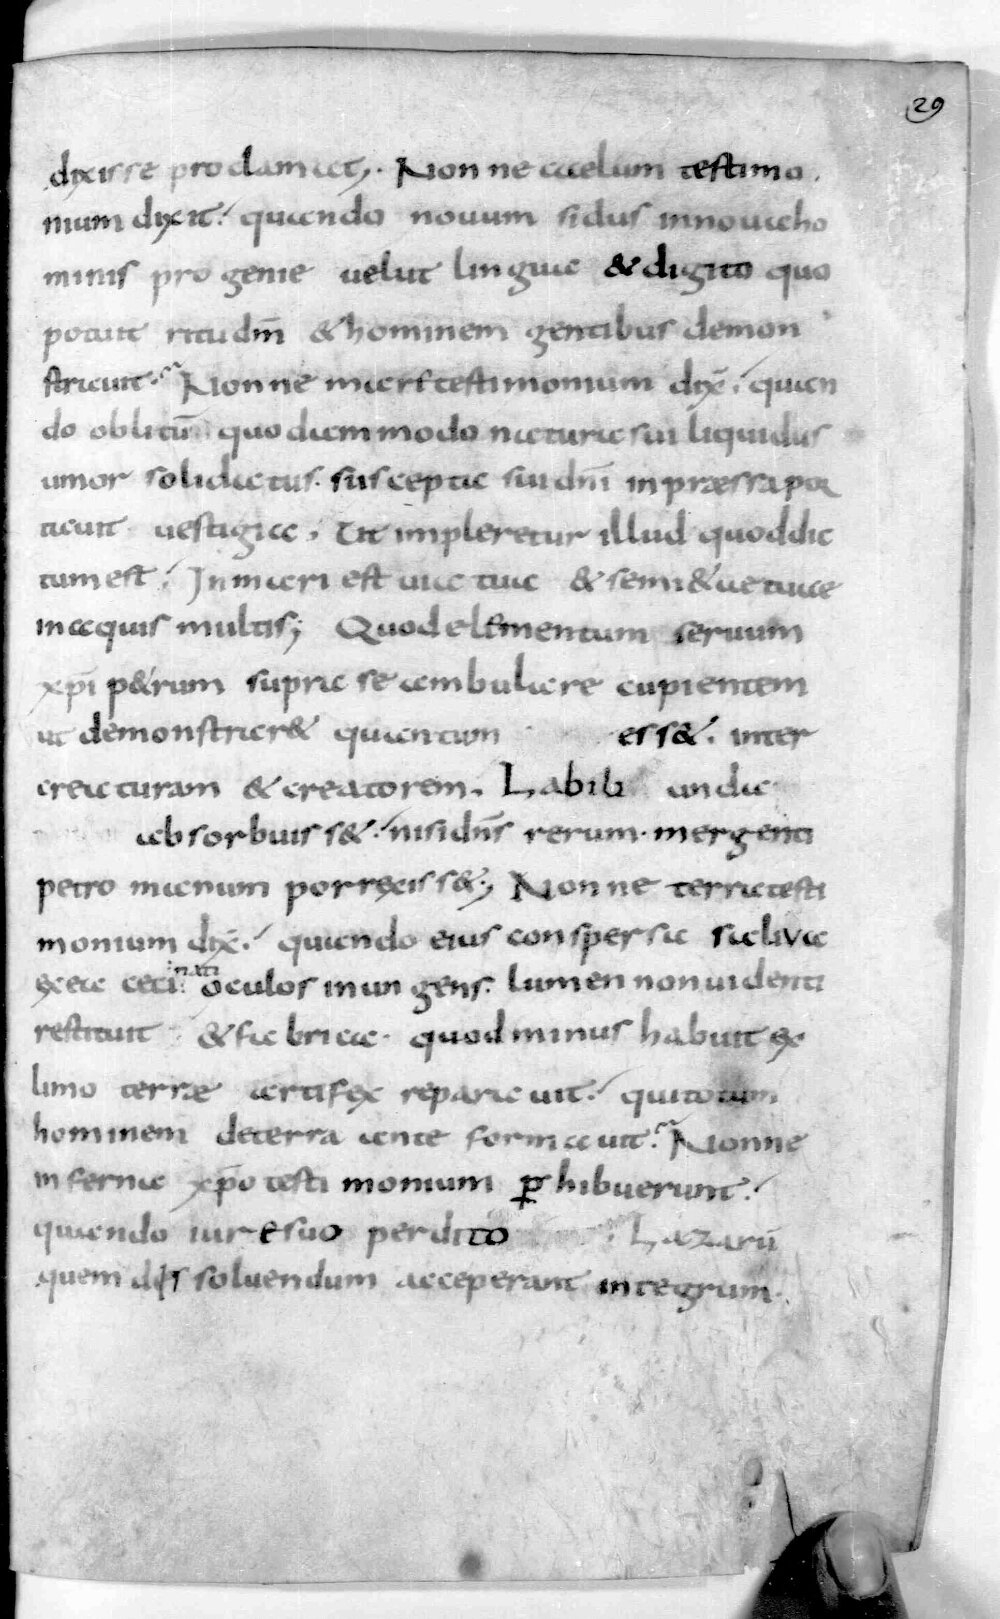 29
dixisse proclamat,. Nonne caelum testimo
nium dixit. quando nouum sidus innoua ho
minis progenie uelut lingua & digito quo
potuit ritu dm̄ & hominem gentibus demon
strauit. Nonne mare testimonium dix̄. quan
do oblitū quodammodo naturae sui liquidus
umor solidatus. suscepta sui dn̄i inpraessa por
tauit uestigia. Ut impleretur illud quod dic
tum est. In mari est uia tua & semi&ue tuae
in aquis multis; Quod elementum seruum
xp̄i p&rum supra se ambulare cupientem
ut demonstrar& quantum ess&. inter
creaturam & creatorem. Labili unda
absorbuiss&. nisi dn̄s rerum. mergenti
petro manum porrexiss&., Nonne terra testi
monium dix̄. quando eius conspersa saliua
ex ea ceci nati oculos inungens. lumen non uidenti
restituit & fabrica. quod minus habuit ex
limo terrae artifex reparauit. qui totum
hominem deterra ante formauit. Nonne
inferna xp̄o testimonium ꝑhibuerunt.
quando iure suo perdito Lazarū
quem dissoluendum acceperant integrum.